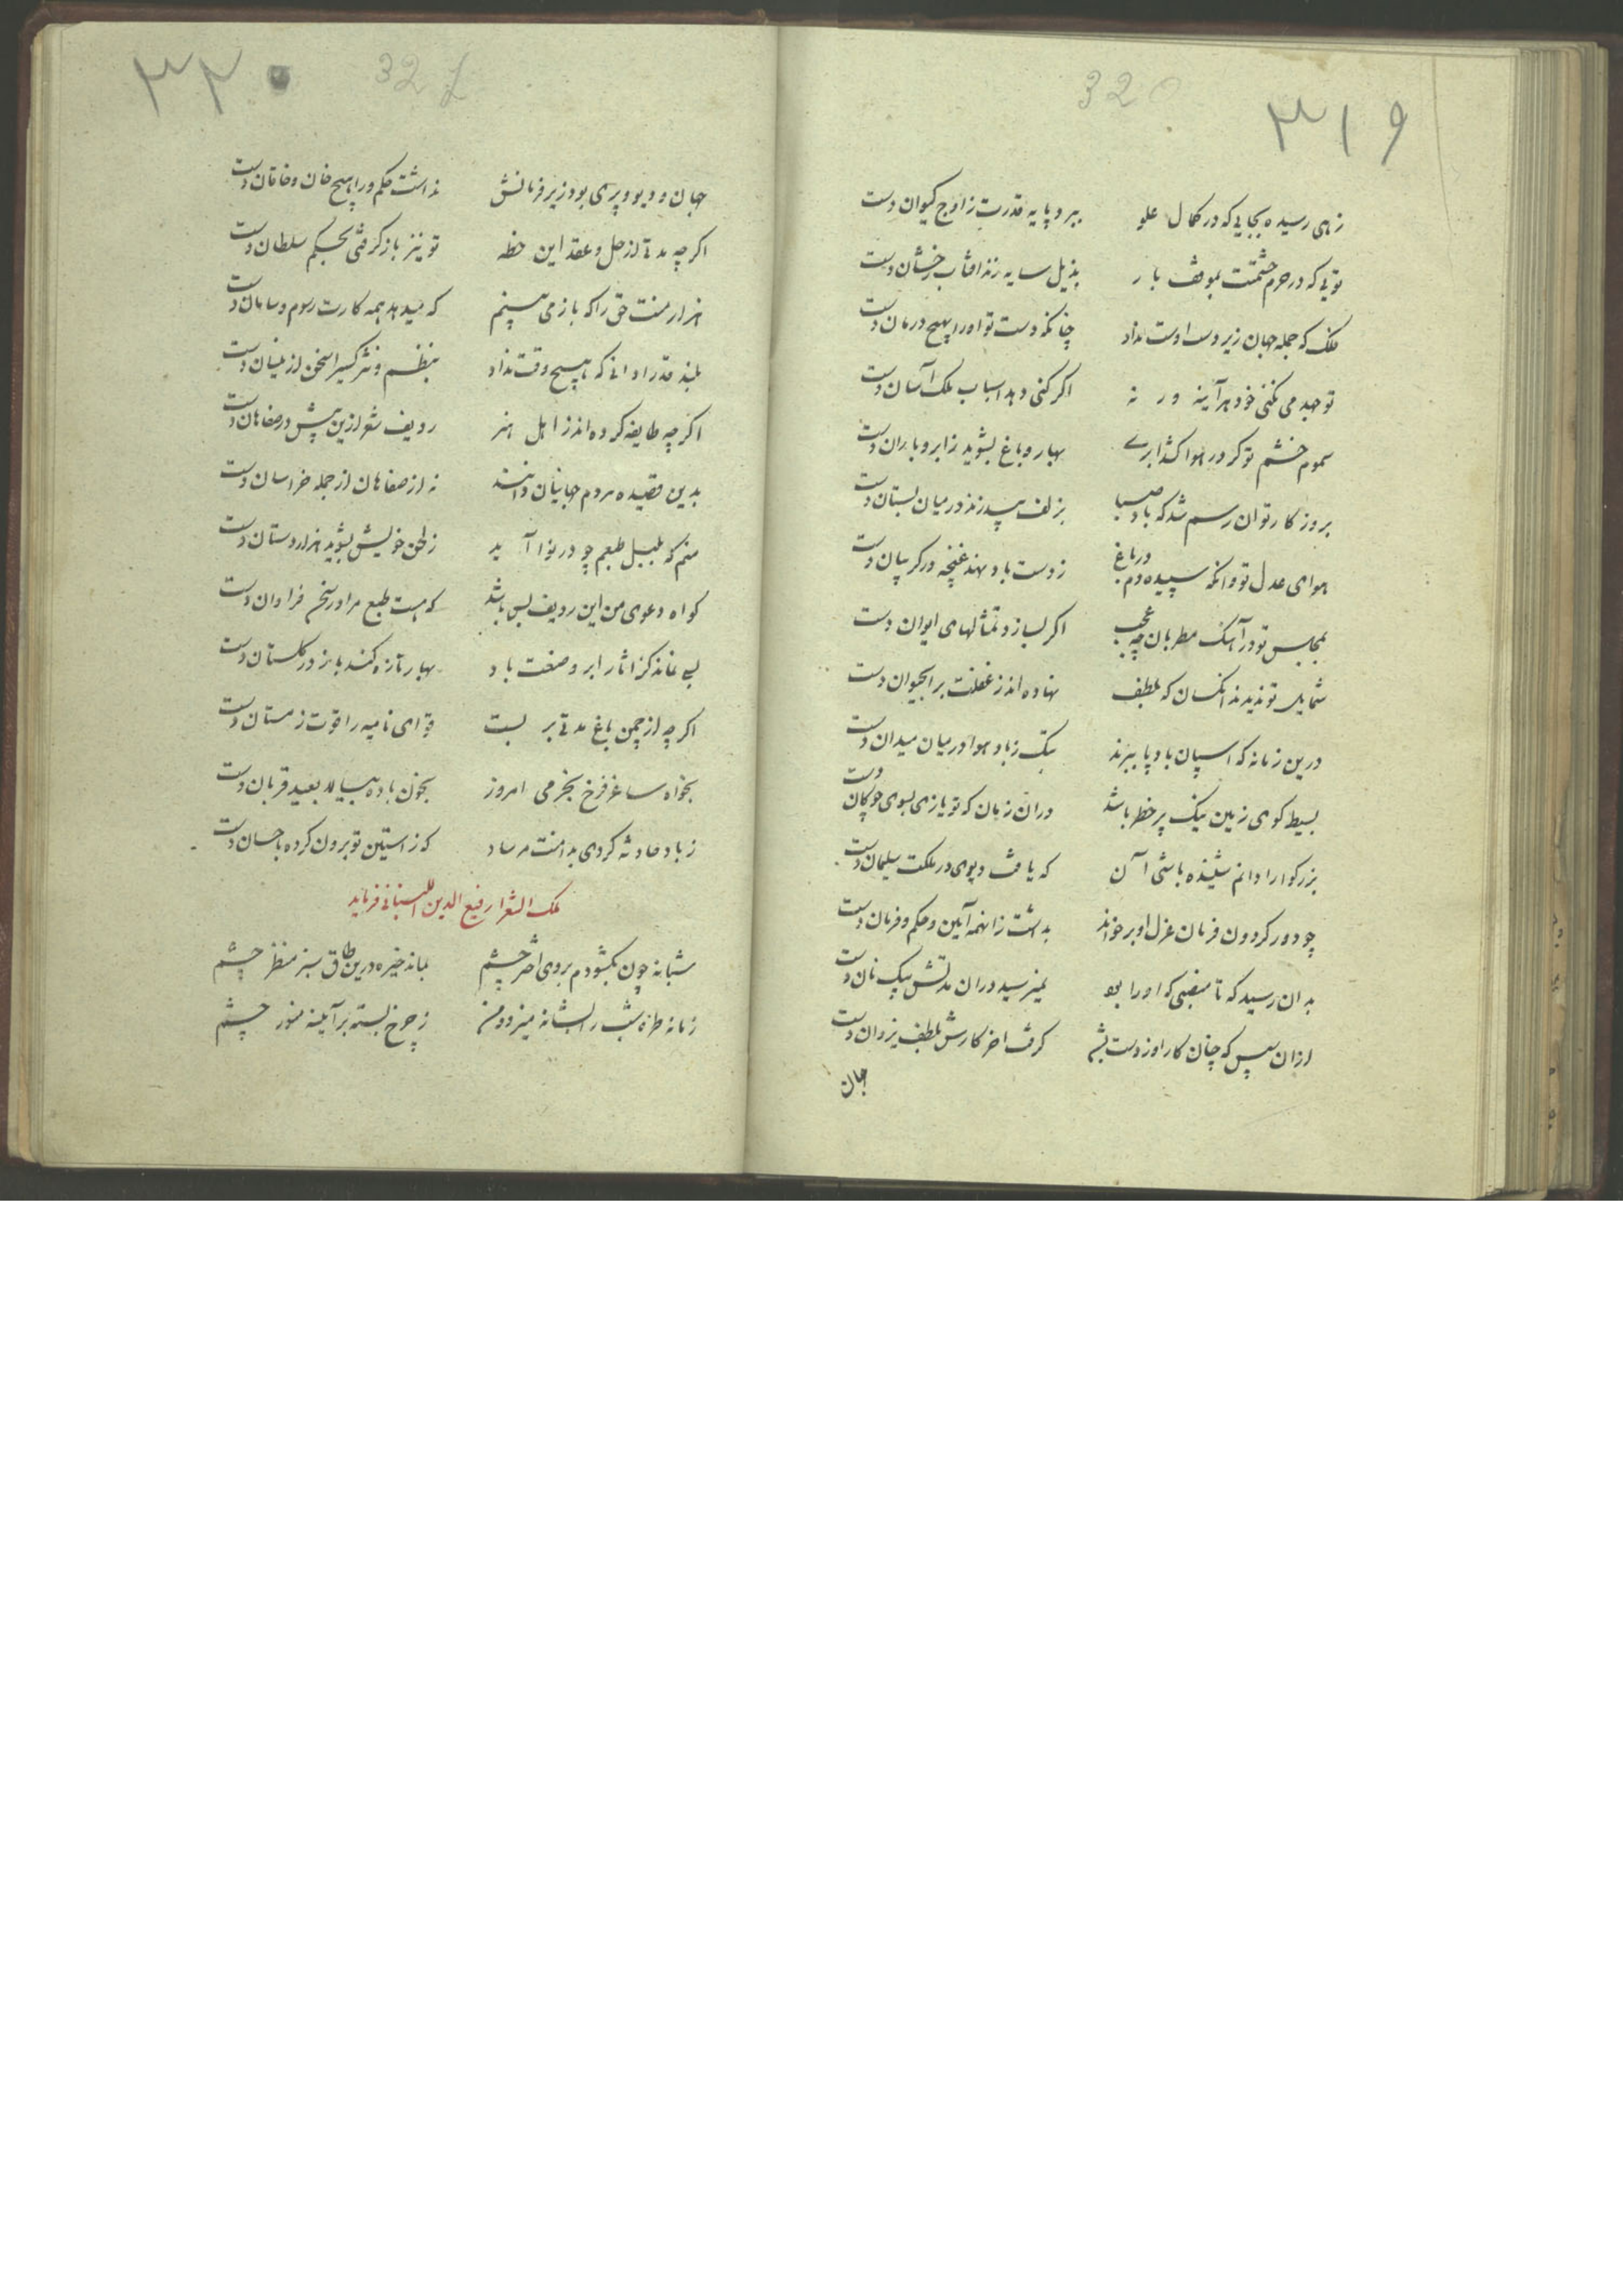 ۳۱۹
320
زهی رسیده بجایی که در کمال علو ببرد پایه قدرت ز اوج کیوان دست
تویی که در حرم حشمتت بموقف بار بذیل سایه زند افتاب رخشان دست
فلک که جمله جهان زیر دست اوست نداد چنانکه دست تو او را بهیچ درمان دست
تو جهد می نکنی خود هرآینه ور نه اگر کنی دهد اسباب ملک آسان دست
سموم خشم تو گر در هوا کشد ابری بهار و باغ بشوید ز ابر و باران دست
بروزگار تو ان رسم شد که باد صبا بزلف بید زند در میان بستان دست
هوای عدل تو وانگه سپیده دم در باغ ز دست باد نهد غنچه در گریبان دست
بمجلس تو در آهنگ مطربان چه عجب اگر بسازد تمثالهای ایوان دست
شمایل تو ندیدند انکسان که بلطف نهاده اند ز غفلت بر ابحیوان دست
درین زمانه که اسپان باد پا ببرند بتک ز باد هوا در میان میدان دست
بسیط گوی زمین نیک پر خطر باشد دران زمان که تو یازی بسوی چوگان دست
بزرگوارا دانم شنیده باشی آن که یافت دیوی در ملکت سلیمان دست
چو دور گردون فرمان عزل او بر خواند بداشت زانهمه آیین و حکم و فرمان دست
بدان رسید که تا منصبی که او را بود نمیرسید دران مدتش بیک نان دست
ازان سپس که چنان کار او ز دست بشد گرفت اخر کارش بلطف یزدان دست
جهان
۳۲۰
321
جهان و دیو و پری بود زیر فرمانش نداشت حکم ورا هیچ خان و خاقان دست
اگر چه مدتی از حل و عقد این خطه تو نیز باز گرفتی بحکم سلطان دست
هزار منت حق را که باز می بینم که میدهد همه کارت رسوم و سامان دست
بلند قدرا دانی که هیچ وقت نداد بنظم و نثر کسیرا سخن ازینسان دست
اگر چه طایفه کرده اند ز اهل هنر ردیف شعر ازین پیش در صفاهان دست
بدین قصیده مردم جهانیان دانند نه از صفاهان از جمله خراسان دست
منم که بلبل طبعم چو در نوا آید ز لحن خویش بشوید هزاردستان دست
گواه دعوی من این ردیف بس باشد که هست طبع مرا در سخن فراوان دست
بسی نماند کز اثار ابر و صنعت باد بهار تازه کند باز در گلستان دست
اگر چه از چمن باغ مدتی بر بست قوای نامیه را قوت زمستان دست
بخواه ساغر فرخ بخرمی امروز بخون باده بیالا بعید قربان دست
ز باد حادثه گردی بدامنت مرساد که ز استین تو برون کرده باحسان دست
ملک الشعرا رفیع الدین اللنبانی فرماید
شبانه چون بگشودم بروی اختر چشم بماند خیره درین طاق سبز منظر چشم
زمانه طره شب را بشانه میزد و من ز چرخ بسته بر آیینه منور چشم